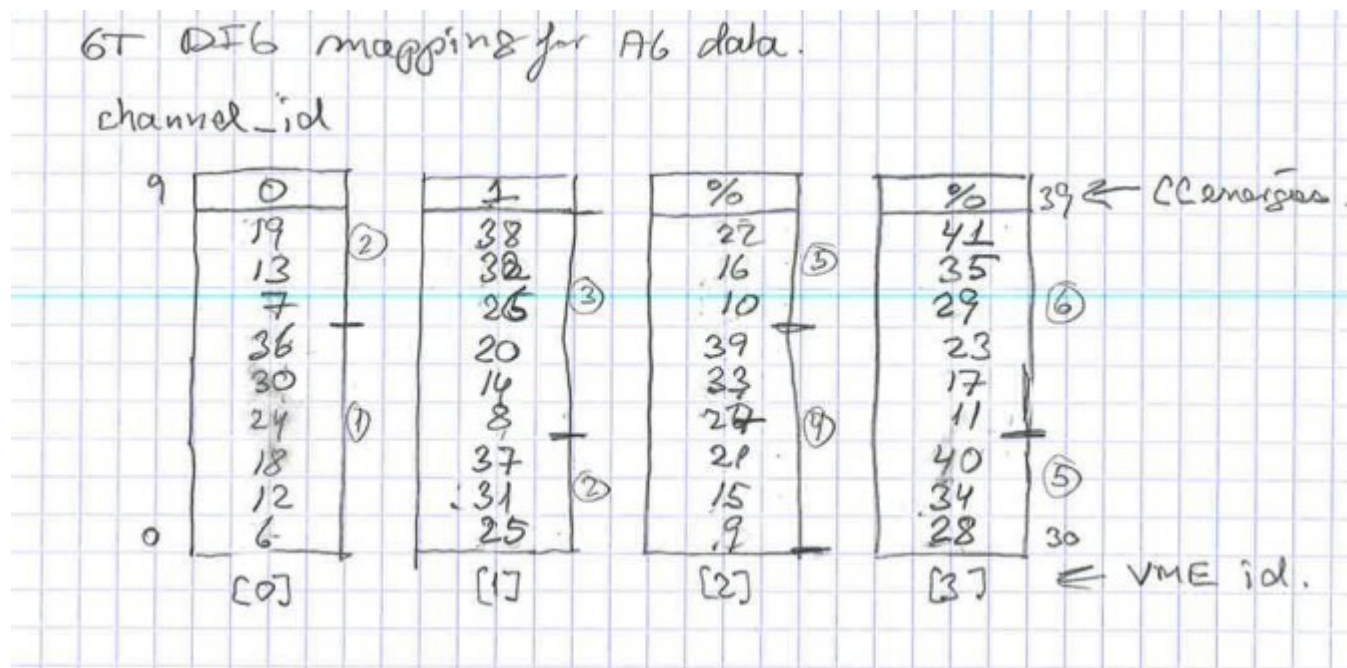 6T DIG mapping for A6 data.
channel_id
9 0 1 % % 39 ← CC energies.
19 ② 38 22 41
13 32 16 ⑤ 35
7 26 ③ 10 29 ⑥
36 20 39 23
30 14 33 17
24 ① 8 27 ④ 11
18 37 21 40
12 31 ② 15 34 ⑤
0 6 25 9 28 30
[0] [1] [2] [3] ← VME id.